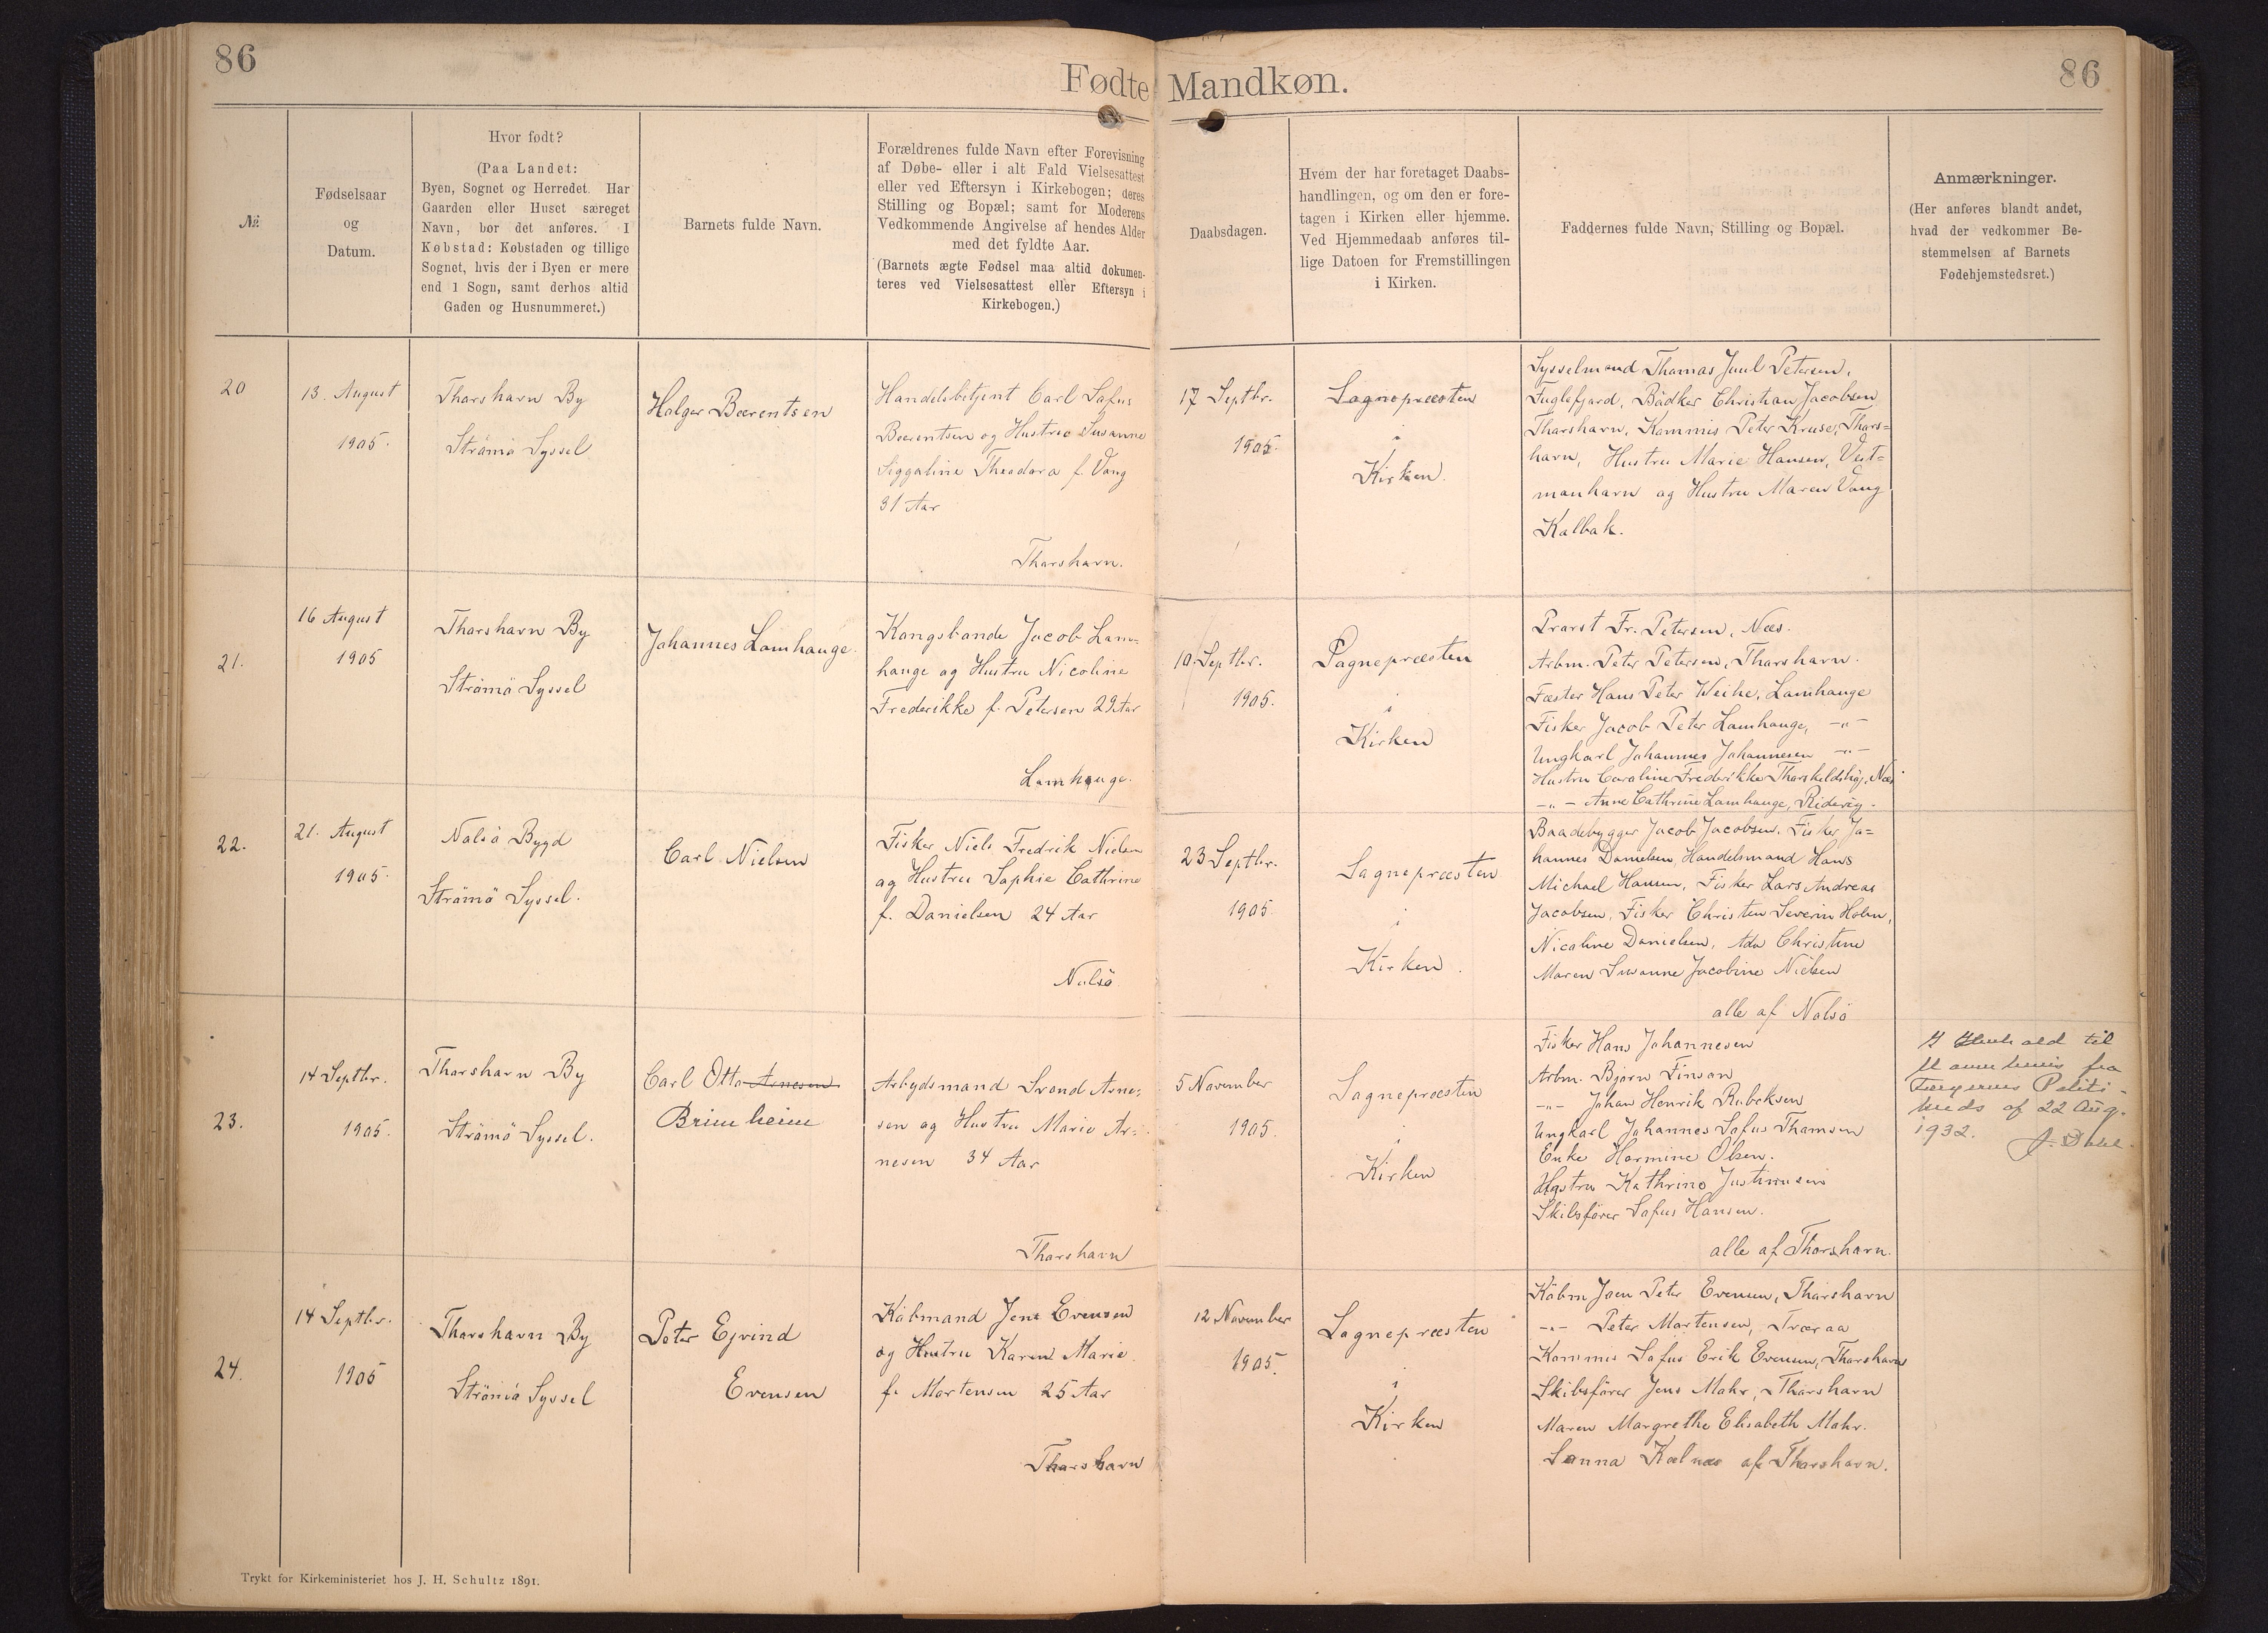 86
Fødte Mandkøn.
86
№
Fødselsaar
og
Datum.
Hvor født?
(Paa Landet:
Byen, Sognet og Herredet. Har
Gaarden eller Huset særeget
Navn, bør det anføres. I
Købstad: Købstaden og tillige
Sognet, hvis der i Byen er mere
end 1 Sogn, samt derhos altid
Gaden og Husnummeret.)
Barnets fulde Navn.
Forældrenes fulde Navn efter Forevisning
af Døbe- eller i alt Fald Vielsesattest
eller ved Eftersyn i Kirkebogen; deres
Stilling og Bopæl; samt for Moderens
Vedkommende Angivelse af hendes Alder
med det fyldte Aar.
(Barnets ægte Fødsel maa altid dokumen-
teres ved Vielsesattest eller Eftersyn i
Kirkebogen.)
Daabsdagen.
Hvem der har foretaget Daabs-
handlingen, og om den er fore-
tagen i Kirken eller hjemme.
Ved Hjemmedaab anføres til-
lige Datoen for Fremstillingen
i Kirken.
Faddernes fulde Navn, Stilling og Bopæl.
Anmærkninger.
(Her anføres blandt andet,
hvad der vedkommer Be-
stemmelsen af Barnets
Fødehjemstedsret.)
20
13. August
1905.
Thorshavn By
Strömö Syssel
Holger Bærentsen
Handelsbetjent Carl Sofus
Bærentsen og Hustru Susanne
Siggaline Theodora f. Vang
31 Aar
Thorshavn.
17 Septbr.
1905.
Sognepræsten
i
Kirken.
Sysselmand Thomas Juul Petersen,
Fuglefjord, Bödker Christian Jacobsen
Thorshavn, Kommis Peter Kruse, Thors=
havn, Hustru Marie Hansen, Vest=
manhavn og Hustru Maren Vang
Kalbak.
21.
16 August
1905
Thorshavn By
Strömö Syssel
Johannes Lamhauge.
Kongsbonde Jacob Lam=
hauge og Hustru Nicoline
Frederikke f. Petersen 29 Aar
Lamhauge.
10. Septbr.
1905.
Sognepræsten
i
Kirken
Provst Fr. Petersen, Næs.
Arbm. Peter Petersen, Thorshavn.
Fæster Hans Peter Weihe, Lamhauge
Fisker Jacob Peter Lamhauge, -"-
Ungkarl Johannes Johannesen -"-
Hustru Caroline Frederikke Thorkeldshøj, Næs
-"- Anne Cathrine Lamhauge, Ridevig.
22.
21. August
1905.
Nolsö Bygd
Strömö Syssel.
Carl Nielsen
Fisker Niels Fredrik Nielsen
og Hustru Sophie Cathrine
f. Danielsen 24 Aar
Nolsö
23 Septbr.
1905
Sognepræsten
i
Kirken.
Baadebygger Jacob Jacobsen, Fisker Jo=
hannes Danielsen, Handelsmand Hans
Michael Hansen, Fisker Lars Andreas
Jacobsen, Fisker Christen Severin Holm,
Nicoline Danielsen, Ada Christine
Maren Susanne Jacobine Nielsen
alle af Nolsö
23.
14 Septbr.
1905.
Thorshavn By
Strömö Syssel.
Carl Otto Arnesen
Brimheim
Arbejdsmand Svend Arne=
sen og Hustru Marie Ar=
nesen 34 Aar
Thorshavn
5 November
1905.
Sognepræsten
i
Kirken
Fisker Hans Johannesen
Arbm. Bjørn Finson
-"- Johan Henrik Rubeksen
Ungkarl Johannes Sofus Thomsen
Enke Hermine Olsen.
Hustru Kathrine Justinusen
Skibsfører Sofus Hansen.
alle af Thorshavn.
I Henhold til
Navnebevis fra
Færøernes Politi-
kreds af 22 Aug.
1932.
24.
14 Septbr.
1905
Thorshavn By
Strömö Syssel
Peter Ejvind
Evensen
Købmand Jens Evensen
og Hustru Karen Marie
f. Mortensen 25 Aar
Thorshavn
12 November
1905.
Sognepræsten
i
Kirken
Købm Joen Peter Evensen, Thorshavn
-"- Peter Mortensen, Tværaa
Kommis Sofus Erik Evensen, Thorshavn
Skibsfører Jens Mohr, Thorshavn
Maren Margrethe Elisabeth Mohr.
Sanna Kalnæs af Thorshavn.
Trykt for Kirkeministeriet hos J. H. Schultz 1891.